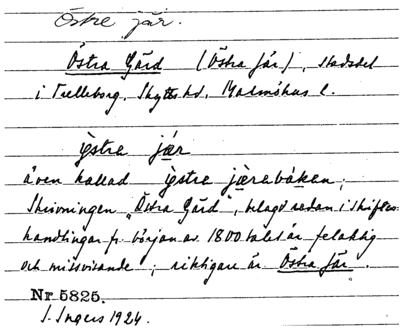 Östre jär.
Östra Gärd (Östra Jär), stadsdel
i Trelleborg, Skytts hd, Malmöhus l.
ỳstre jær
även kallad ỳstre jærabáken;
Skrivningen "Östra Gärd", belagd redan i skiftes-
handlingar fr. början av 1800 talet är felaktig
och missvisande; riktigare är Östra Jär.
Nr 5825.
I. Ingers 1924.